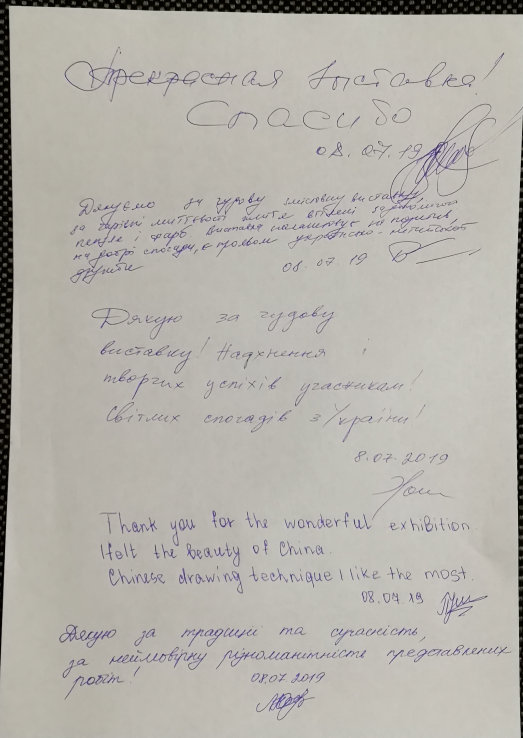 Прекрасная выставка!
Спасибо
08.07.19
Дякуємо за чудову змістовну виставку
за чарівні миттєвості життя втілені за допомогою
пензля і фарб. Виставка налаштовує на позитив,
на добрі спогади, є проявом українсько-китайської
дружби
08.07.19
Дякую за чудову
виставку! Надхнення і
творчих успіхів учасникам!
Світлих спогадів з України!
8.07.2019
Thank you for the wonderful exhibition.
I felt the beauty of China.
Chinese drawing technique I like the most.
08.07.19
Дякую за традиції та сучасність,
за неймовірну різноманітність представлених
робіт!
08.07.2019